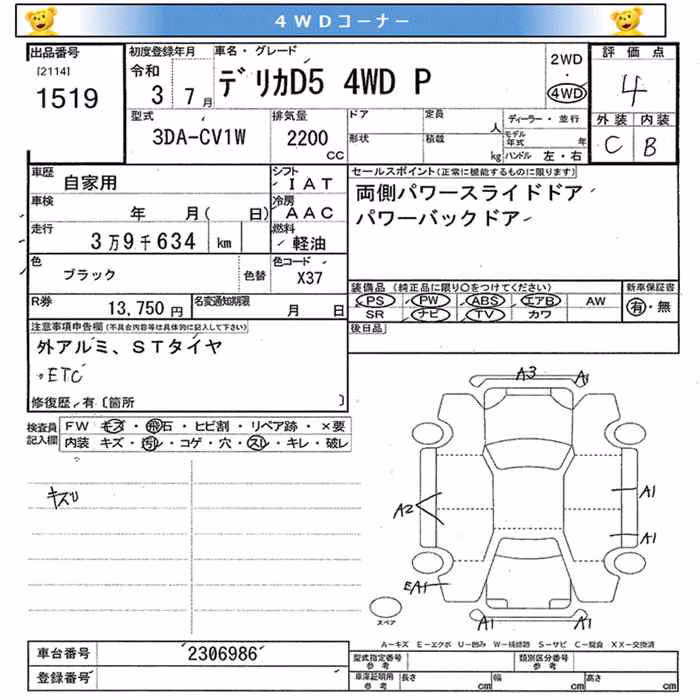 4WDコーナー
出品番号
[2114]
1519
初度登録年月
令和
3 7月
車名・グレード
デリカD5 4WD P
2WD
・
4WD
評価点
4
外装 内装
C B
型式
3DA-CV1W
排気量
2200
CC
ドア
形状
定員
人
積載
kg
ディーラー・並行
モデル年式 年
ハンドル 左・右
車歴
自家用
シフト
IAT
車検
年 月( 日)
冷房
AAC
走行
3万9千634 km
燃料
軽油
色
ブラック
色替
色コード
X37
R券
13,750円
名変通知期限
月 日
セールスポイント(正常に機能するものに限ります)
両側パワースライドドア
パワーバックドア
装備品(純正品に限り〇をつけてください)
新車保証書
PS PW ABS エアB AW
SR ナビ TV カワ
有・無
後日品
注意事項申告欄(不具合内容等は具体的に記入して下さい)
外アルミ、STタイヤ
・ETC
修復歴・有[箇所 ]
検査員記入欄
FW キズ・飛石・ヒビ割・リペア跡・×要
内装 キズ・汚レ・コゲ・穴・スレ・キレ・破レ
キズリ
A3
A1
A2
A1
A1
EA1
A1
A1
スペア
A−キズ E−エクボ U−凹み W−補修跡 S−サビ C−腐食 XX−交換済
車台番号
2306986
登録番号
型式指定番号
参考
類別区分番号
参考
車庫証明用
参考
長さ
cm
幅
cm
高さ
cm